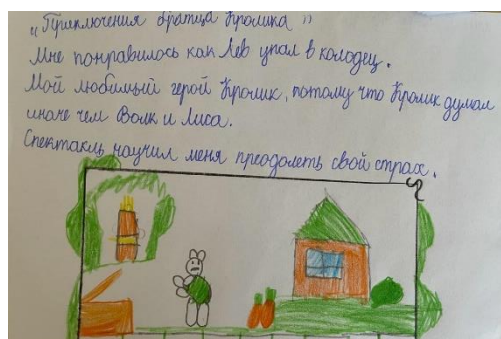 „Приключения братца Кролика"
Мне понравилось как Лев упал в колодец.
Мой любимый герой Кролик, потому что Кролик думал
иначе чем Волк и Лиса.
Спектакль научил меня преодолеть свой страх.